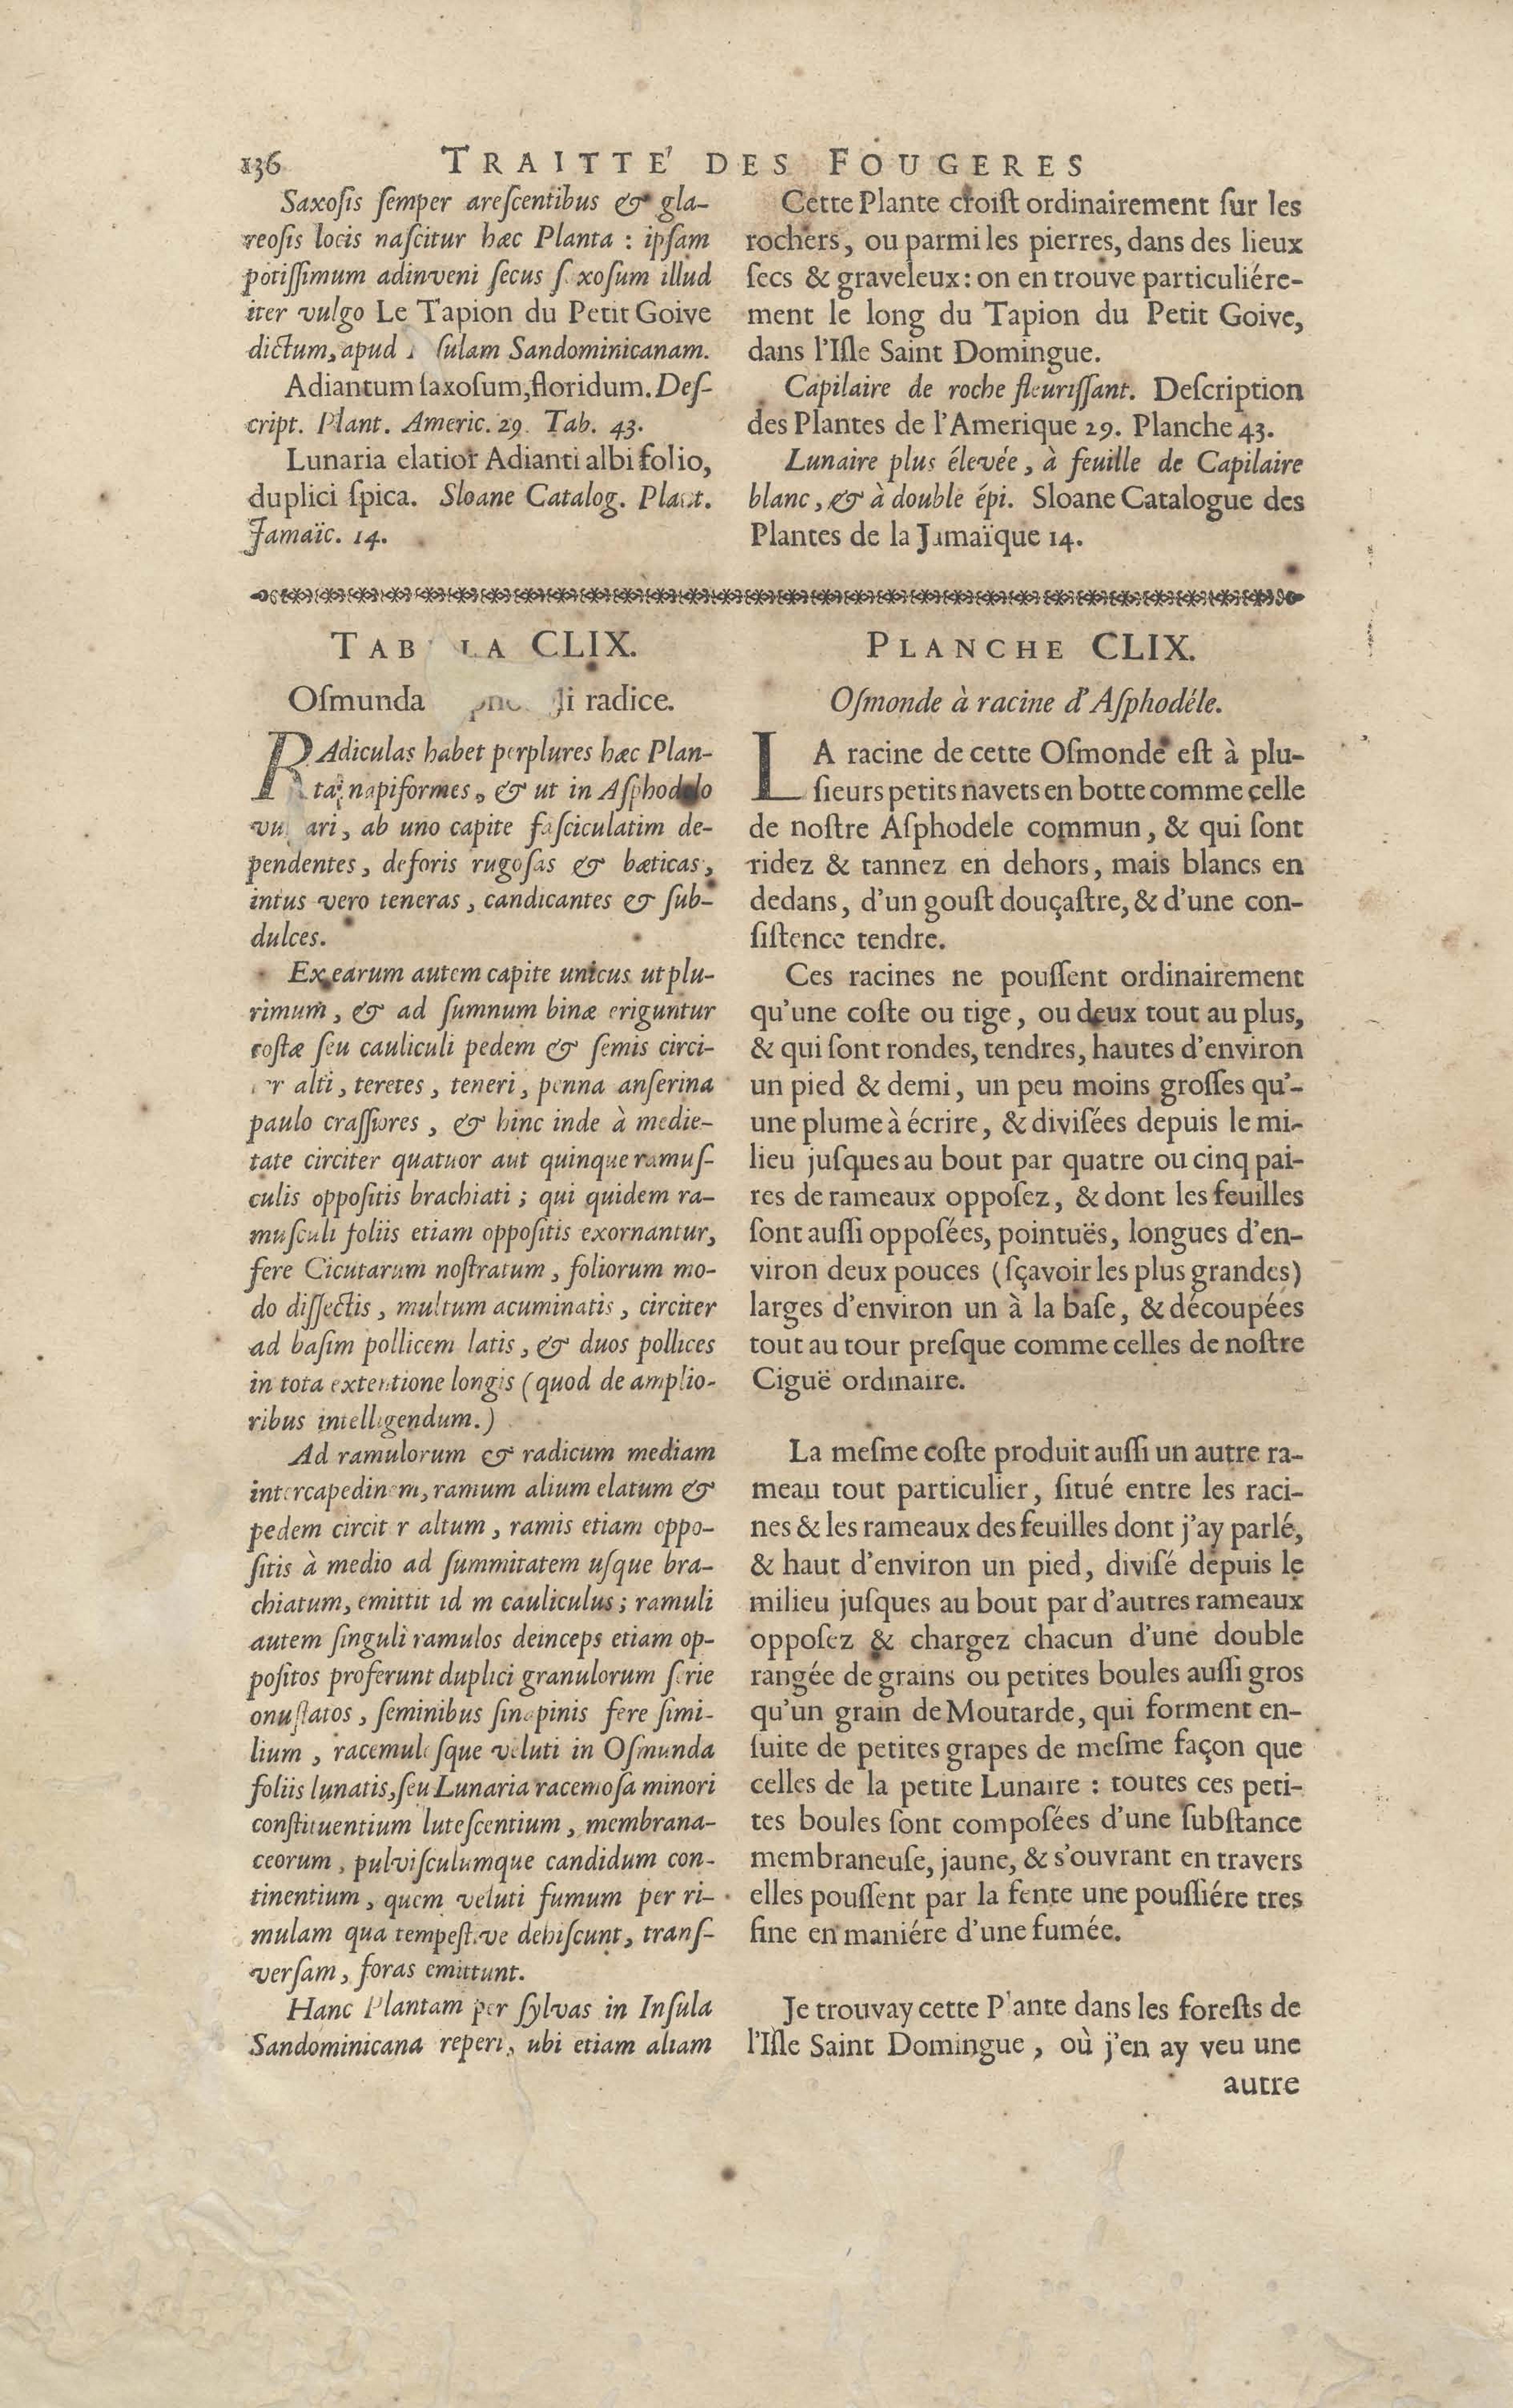 136 TRAITTE' DES FOUGERES
Saxosis semper arescentibus & gla-
reosis locis nascitur hæc Planta : ipsam
potissimum adinveni secus illud
iter vulgo Le Tapion du Petit Goive
dictum, apud Sandominicanam.
Adiantum saxosum, floridum. Des-
cript. Plant. Americ. 29. Tab. 43.
Lunaria elatior Adianti albi folio,
duplici spica. Sloane Catalog. Plant.
Jamaïc. 14.
TAB LA CLIX.
Osmunda radice.
RAdiculas habet perplures hæc Plan-
ta, napiformes, & ut in Asphodelo
ab uno capite fasciculatim de-
pendentes, deforis rugosas & bæticas,
intus vero teneras, candicantes & sub-
dulces.
Ex earum autem capite unicus ut plu-
rimum, & ad sumnum binæ eriguntur
costæ seu cauliculi pedem & semis circi-
alti, teretes, teneri, penna anserina
paulo crassiores, & hinc inde à medie-
tate circiter quatuor aut quinque ramus-
culis oppositis brachiati ; qui quidem ra-
musculi foliis etiam oppositis exornantur,
fere Cicutarum nostratum, foliorum mo-
do dissectis, multum acuminatis, circiter
ad basim pollicem latis, & duos pollices
in tota extentione longis (quod de amplio-
ribus intelligendum.)
Ad ramulorum & radicum mediam
intercapedinem, ramum alium elatum &
pedem circiter altum, ramis etiam oppo-
sitis à medio ad summitatem usque bra-
chiatum, emittit cauliculus ; ramuli
autem singuli ramulos deinceps etiam op-
positos proferunt duplici granulorum serie
onustatos, seminibus sinapinis fere simi-
lium, racemulosque veluti in Osmunda
foliis lunatis, seu Lunaria racemosa minori
constituentium lutescentium, membrana-
ceorum, pulvisculumque candidum con-
tinentium, quem veluti fumum per ri-
mulam qua tempestive dehiscunt, trans-
versam, foras emittunt.
Hanc Plantam per sylvas in Insula
Sandominicana reperi, ubi etiam aliam
Cette Plante croist ordinairement sur les
rochers, ou parmi les pierres, dans des lieux
secs & graveleux : on en trouve particuliére-
ment le long du Tapion du Petit Goive,
dans l'Isle Saint Domingue.
Capilaire de roche fleurissant. Description
des Plantes de l'Amerique 29. Planche 43.
Lunaire plus élevée, à feuille de Capilaire
blanc, & à double épi. Sloane Catalogue des
Plantes de la Jamaïque 14.
PLANCHE CLIX.
Osmonde à racine d'Asphodéle.
LA racine de cette Osmonde est à plu-
sieurs petits navets en botte comme celle
de nostre Asphodele commun, & qui sont
ridez & tannez en dehors, mais blancs en
dedans, d'un goust douçastre, & d'une con-
sistence tendre.
Ces racines ne poussent ordinairement
qu'une coste ou tige, ou deux tout au plus,
& qui sont rondes, tendres, hautes d'environ
un pied & demi, un peu moins grosses qu'-
une plume à écrire, & divisées depuis le mi-
lieu jusques au bout par quatre ou cinq pai-
res de rameaux opposez, & dont les feuilles
sont aussi opposées, pointuës, longues d'en-
viron deux pouces (sçavoir les plus grandes)
larges d'environ un à la base, & découpées
tout au tour presque comme celles de nostre
Ciguë ordinaire.
La mesme coste produit aussi un autre ra-
meau tout particulier, situé entre les raci-
nes & les rameaux des feuilles dont j'ay parlé,
& haut d'environ un pied, divisé depuis le
milieu jusques au bout par d'autres rameaux
opposez & chargez chacun d'une double
rangée de grains ou petites boules aussi gros
qu'un grain de Moutarde, qui forment en-
suite de petites grapes de mesme façon que
celles de la petite Lunaire : toutes ces peti-
tes boules sont composées d'une substance
membraneuse, jaune, & s'ouvrant en travers
elles poussent par la fente une poussiére tres
fine en maniére d'une fumée.
Je trouvay cette Plante dans les forests de
l'Isle Saint Domingue, où j'en ay veu une
autre